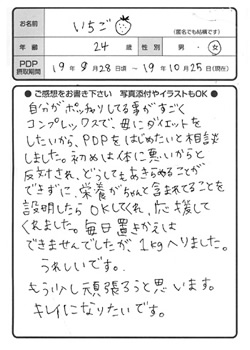 お名前 いちご
(匿名でも結構です)
年齢 24歳 性別 男・女
PDP摂取期間 19年9月28日頃〜19年10月25日(現在)
● ご感想をお書き下さい 写真添付やイラストもOK ●
自分がポッチャリしてる事がすごく
コンプレックスで、母にダイエットを
したいから、PDPをはじめたいと相談
しました。初めは体に悪いからと
反対され、どうしてもあきらめることが
できずに、栄養がちゃんと含まれてることを
説明したらOKしてくれ、応援して
くれました。毎日置きかえは
できませんでしたが、1kgへりました。
うれしいです。
もう少し頑張ろうと思います。
キレイになりたいです。